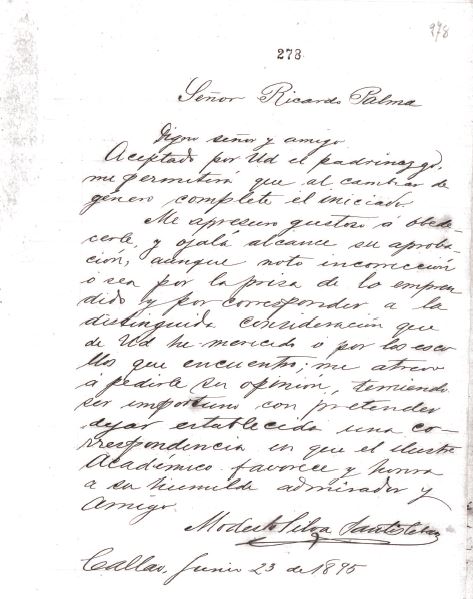 278
273
Señor Ricardo Palma
Digno señor y amigo
Aceptado por Ud el padrinazgo,
me permitirá que al cambiar de
género complete el iniciado.
Me apresuro gustoso á obede-
cerle, y ojalá alcance su aproba-
ción, aunque noto incorrección
o sea por la prisa de lo empren
dido y por corresponder a la
distinguida consideración que
de Ud he merecido o por los esco
llos que encuentro; me atrevo
á pedirle su opinión, temiendo
ser importuno con pretender
dejar establecida una co-
rrespondencia en que el ilustre
Académico favorece y honra
a su humilde admirador y
amigo
Modesto Silva Santisteban
Callao, Junio 23 de 1895